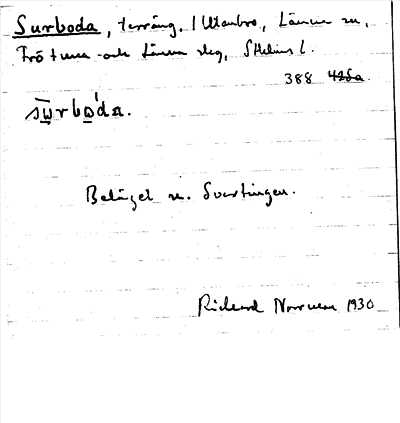 Surboda, terräng, i Utanbro, Länna sn,
Frötuna och Länna slg, Sthlms l.
388 425a.
su̱rbo̱'da.
Beläget n. Svartingen.
Rickard Norman 1930